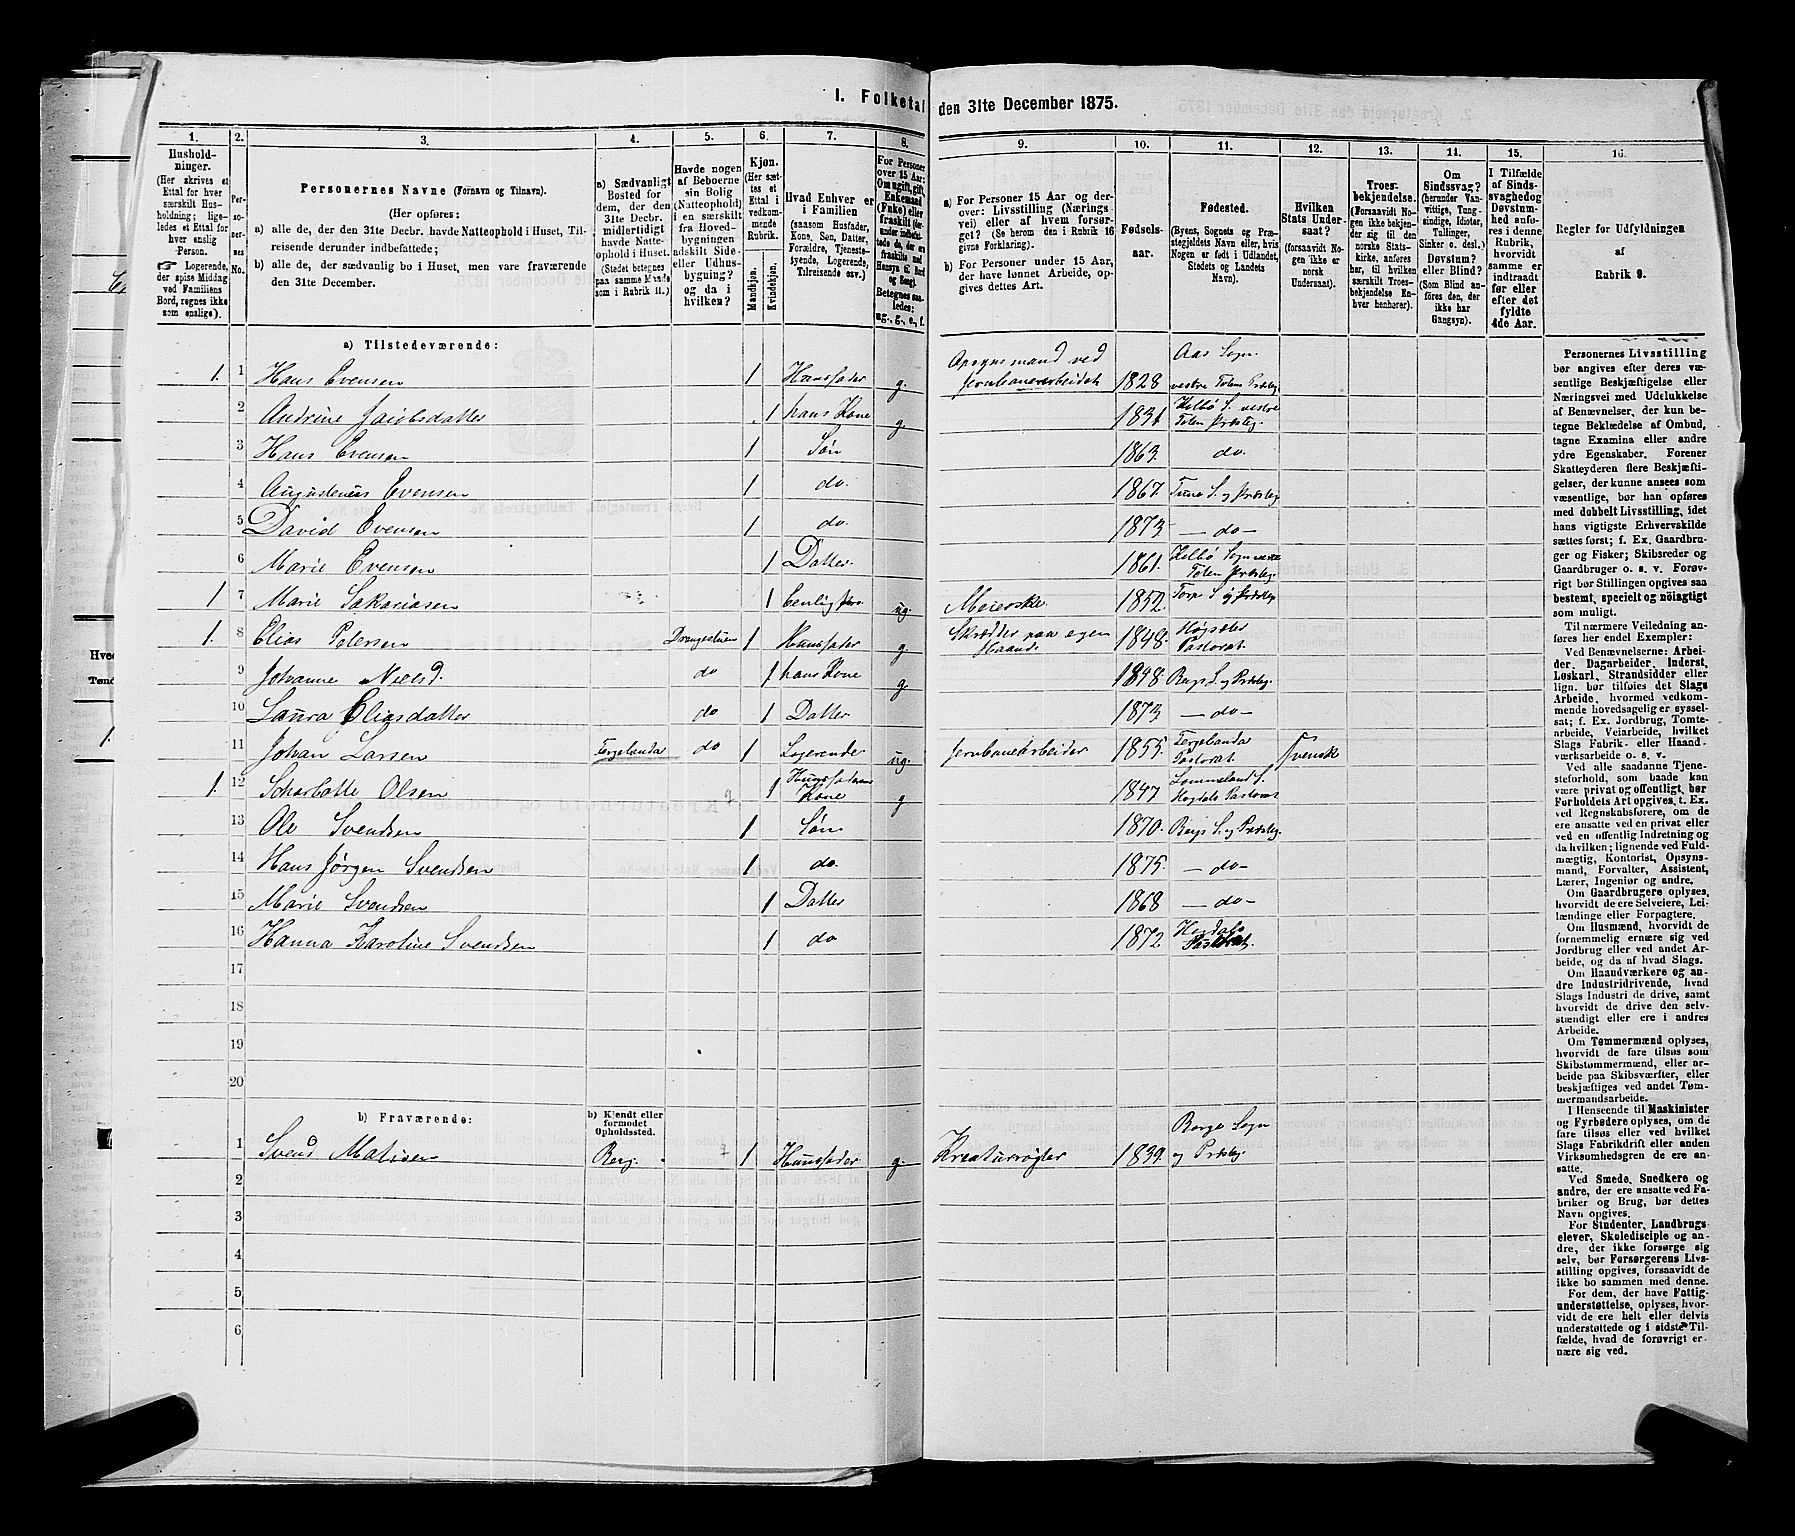 1. Folketal den 31te December 1875.
1. 2. 3. 4. 5. 6. 7. 8. 9. 10. 11. 12. 13. 14. 15. 16.
Hushold-
ninger.
(Her skrives et
Ettal for hver
særskilt Hus-
holdning; lige-
ledes et Ettal
for hver enslig
Person.
Logerende,
der spise Middag
ved Familiens
Bord, regnes ikke
som enslige).
Per-
so-
ner-
nes
No.
Personernes Navne (Fornavn og Tilnavn).
(Her opføres:
a) alle de, der den 31te Decbr. havde Natteophold i Huset, Til-
reisende derunder indbefattede;
b) alle de, der sædvanlig bo i Huset, men vare fraværende
den 31te December.
a) Sædvanligt
Bosted for
dem, der den
31te Decbr.
midlertidigt
havde Natte-
ophold i Huset.
(Stedet betegnes
paa samme Maade
som i Rubrik 11.)
Havde nogen
af Beboerne
sin Bolig
(Natteophold)
i en særskilt
fra Hoved-
bygningen
adskilt Side-
eller Udhus-
bygning?
og da i
hvilken?
Kjøn.
(Her sæt-
tes et
Ettal i
vedkom-
mende
Rubrik.
Mandkjøn.
Kvindekjøn.
Hvad Enhver er
i Familien
(saasom Husfader,
Kone, Søn, Datter,
Forældre, Tjeneste-
tyende, Logerende,
Tilreisende osv.)
For Personer
over 15 Aar:
Om ugift, gift,
Enkemand
(Enke) eller
fraskilt
Betegnes saa-
ledes:
ug., g., e., f.
a) For Personer 15 Aar og der-
over: Livsstilling (Nærings-
vei) eller af hvem forsør-
get? (Se herom den i Rubrik 16
givne Forklaring).
b) For Personer under 15 Aar,
der have lønnet Arbeide, op-
gives dettes Art.
Fødsels-
aar.
Fødested.
(Byens, Sognets og Præ-
stegjeldets Navn eller, hvis
Nogen er født i Udlandet,
Stedets og Landets
Navn).
Hvilken
Stats Under-
saat?
(forsaavidt No-
gen ikke er
norsk
Undersaat).
Troes-
bekjendelse.
(Forsaavidt No-
gen ikke bekjen-
der sig til den
norske Stats-
kirke, anføres
her, til hvilken
særskilt Troes-
bekjendelse En-
hver henhører).
Om
Sindssvag?
(herunder Van-
vittige, Tung-
sindige, Idioter,
Tullinger,
Sinker o. desl.)
Døvstum?
eller Blind?
(Som Blind an-
føres den, der
ikke har
Gangsyn).
I Tilfælde
af Sinds-
svaghed og
Døvstumhed
anfø-
res i denne
Rubrik,
hvorvidt
samme er
indtraadt
før eller
efter det
fyldte
4de Aar.
Regler for Udfyldningen
af
Rubrik 9.
a) Tilstedeværende:
1. 1 Hans Evensen 1 Huusfader g. Opsynsmand ved Jernbanearbeidet 1828 Aas Sogn vestre Toten Prdstg.
2 Andrine Jacobsdatter 1 hans Kone g. 1831 Kolbo S. vestre Toten Prdstg.
3 Hans Evensen 1 Søn 1863 do
4 Augustenius Evensen 1 do. 1867 Tune S. og Prdstg.
5 David Evensen 1 do 1873 — do —
6 Marie Evensen 1 Datter 1861 Kolbo Sogn vestre Toten Prdstg.
1 7 Marie Sakariasen 1 ug. Meierske 1852
1. 8 Elias Petersen Drengestuen 1 Huusfader g Skrædder paa egen Haand 1848 Pastorat.
9 Johanne Niels D. do 1 hans Kone g. 1848 Bergs S. og Prdstg.
10 Laura Eliasdatter do 1 Datter 1873 — do —
11 Johan Larsen Fergelanda do 1 Logerende ug. Jernbanearbeider 1855 Fergelanda Pastorat. Svensk
1. 12 Scharlotte Olsen 1 Huusfaderens Kone g 1847 Lommeland S. Hogdals Pastorat
13 Ole Svendsen 1 Søn 1870 Bergs S. og Prdstg.
14 Hans Jørgen Svendsen 1 do. 1875 — do —
15 Marie Svendsen 1 Datter 1868 — do —
16 Hanna Karoline Svendsen 1 do 1872 Hogdals Pastorat.
17
18
19
20
b) Fraværende:
b) Kjendt eller
formodet
Opholdssted.
1 Svend Matisen Berg. 1 Huusfader g. Kreaturrøgter 1839 Bergs Sogn og Prdstg.
2
3
4
5
6
Personernes Livsstilling
bør angives efter deres væ-
sentlige Beskjæftigelse eller
Næringsvei med Udelukkelse
af Benævnelser, der kun be-
tegne Beklædelse af Ombud,
tagne Examina eller andre
ydre Egenskaber. Forener
Skatteyderen flere Beskjæfti-
gelser, der kunne ansees som
væsentlige, bør han opføres
med dobbelt Livsstilling, idet
hans vigtigste Erhvervskilde
sættes først; f. Ex. Gaardbru-
ger og Fisker; Skibsreder og
Gaardbruger o. s. v. Forøv-
rigt bør Stillingen opgives saa
bestemt, specielt og nøiagtigt
som muligt.
Til nærmere Veiledning an-
føres her endel Exempler:
Ved Benævnelserne: Arbei-
der, Dagarbeider, Inderst,
Løskarl, Strandsidder eller
lign. bør tilføies det Slags
Arbeide, hvormed vedkom-
mende hovedsagelig er syssel-
sat; f. Ex. Jordbrug, Tomte-
arbeide, Veiarbeide, hvilket
Slags Fabrik- eller Haand-
værksarbeide o. s. v.
Ved alle saadanne Tjene-
steforhold, som baade kan
være privat og offentligt, bør
Forholdets Art opgives, t. Ex.
ved Regnskabsførere, om de
ere ansatte ved en privat eller
ved en offentlig Indretning og
da hvilken; lignende ved Fuld-
mægtig, Kontorist, Opsyns-
mand, Forvalter, Assistent,
Lærer, Ingeniør og andre.
Om Gaardbrugere oplyses,
hvorvidt de ere Selveiere, Lei-
lændinge eller Forpagtere.
Om Husmænd, hvorvidt de
fornemmelig ernære sig ved
Jordbrug eller ved andet Ar-
beide, og da af hvad Slags.
Om Haandværkere og an-
dre Industridrivende, hvad
Slags Industri de drive, samt
hvorvidt de drive den selv-
stændigt eller ere i andres
Arbeide.
Om Tømmermænd oplyses,
hvorvidt de fare tilsøs som
Skibstømmermænd, eller ar-
beide paa Skibsværfter, eller
beskjæftiges ved andet Tøm-
mermandsarbeide.
I Henseende til Maskinister
og Fyrbødere oplyses, om de
fare tilsøs eller ved hvilket
Slags Fabrikdrift eller anden
Virksomhedsgren de ere an-
satte.
Ved Smede, Snedkere og
andre, der ere ansatte ved Fa-
briker og Brug, bør dettes
Navn opgives.
For Studenter, Landbrugs-
elever, Skoledisciple og an-
dre, der ikke forsørge sig
selv, bør Forsørgerens Livs-
stilling opgives, forsaavidt de
ikke bo sammen med denne.
For dem, der have Fattig-
understøttelse, oplyses, hvor-
vidt de ere helt eller delvis
understøttede og i sidste Til-
fælde, hvad de forøvrigt er-
nære sig ved.